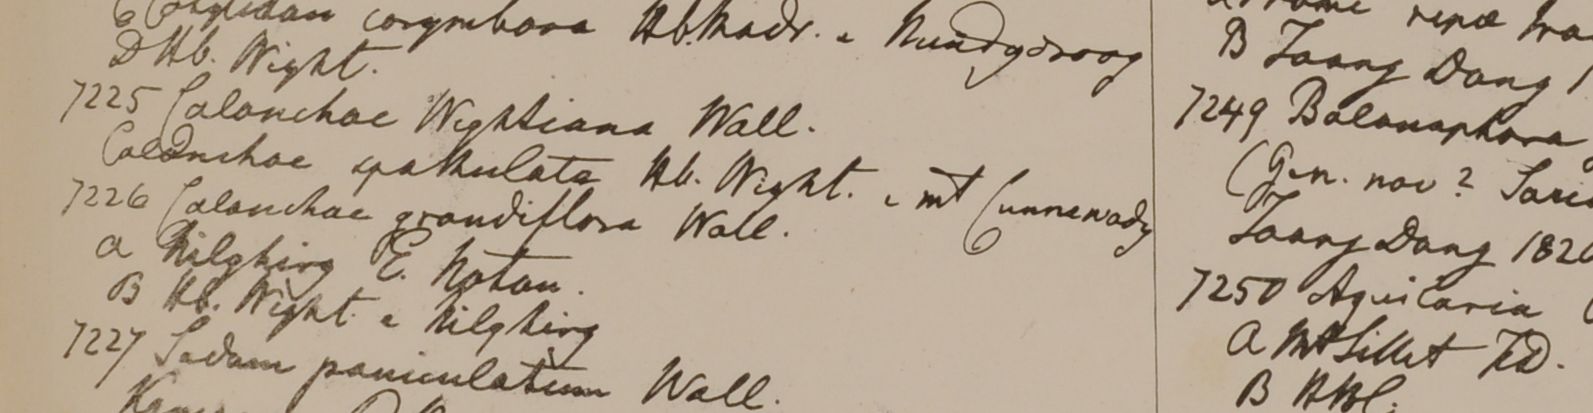 C Cotyledon corymbosa Hb. Madr. e Nundydroog
D Hb. Wight.
7225 Calanchoe Wightiana Wall.
Calanchoe spathulata Hb. Wight. e mt Cunnawady
7226 Calanchoe grandiflora Wall.
a Nilghiry E. Noton.
B Hb. Wight. e Nilghiry
7227 Sedum paniculatum Wall.
B Taong Dong
7249 Balanophora
(Gen. nov?
Taong Dong 182
7250 Aquilaria
a Mt Sillet
B HBC.